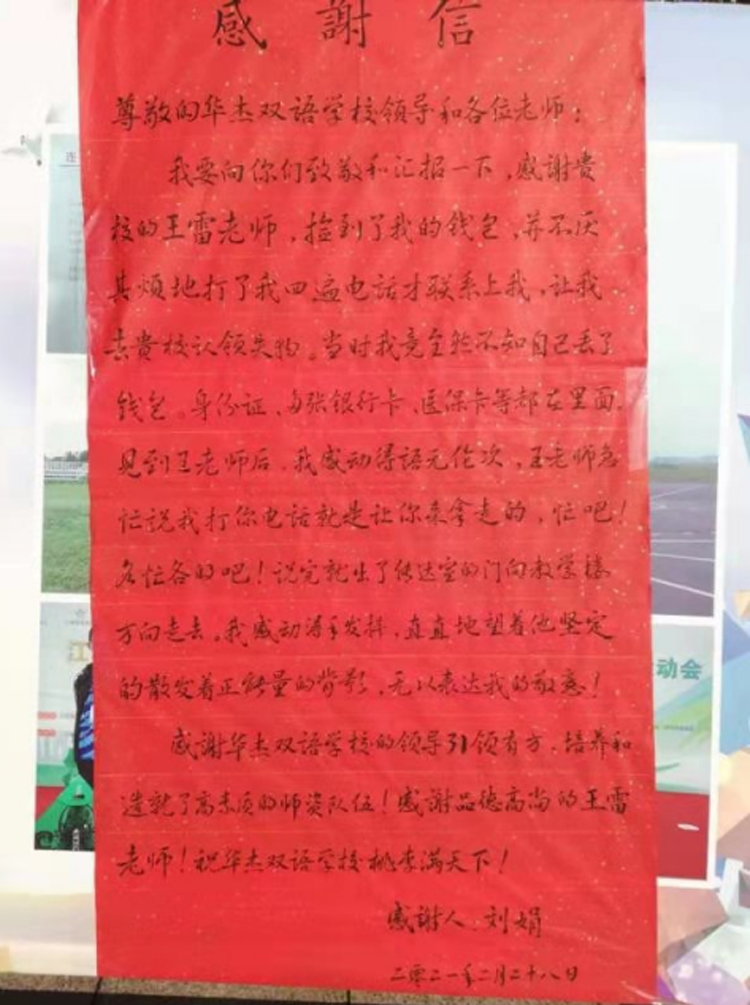 感謝信
尊敬的华杰双语学校领导和各位老师：
我要向你们致敬和汇报一下，感谢贵
校的王雷老师，捡到了我的钱包，并不厌
其烦地打了我四遍电话才联系上我，让我
去贵校认领失物。当时我竟全然不知自己丢了
钱包。身份证、多张银行卡、医保卡等都在里面。
见到王老师后，我感动得语无伦次，王老师急
忙说我打你电话就是让你来拿走的，忙吧！
各忙各的吧！说完就出了传达室的门向教学楼
方向走去。我感动得手发抖，直直地望着他坚定
的散发着正能量的背影，无以表达我的敬意！
感谢华杰双语学校的领导引领有方，培养和
造就了高素质的师资队伍！感谢品德高尚的王雷
老师！祝华杰双语学校桃李满天下！
感谢人：刘娟
二零二一年二月二十八日
动会